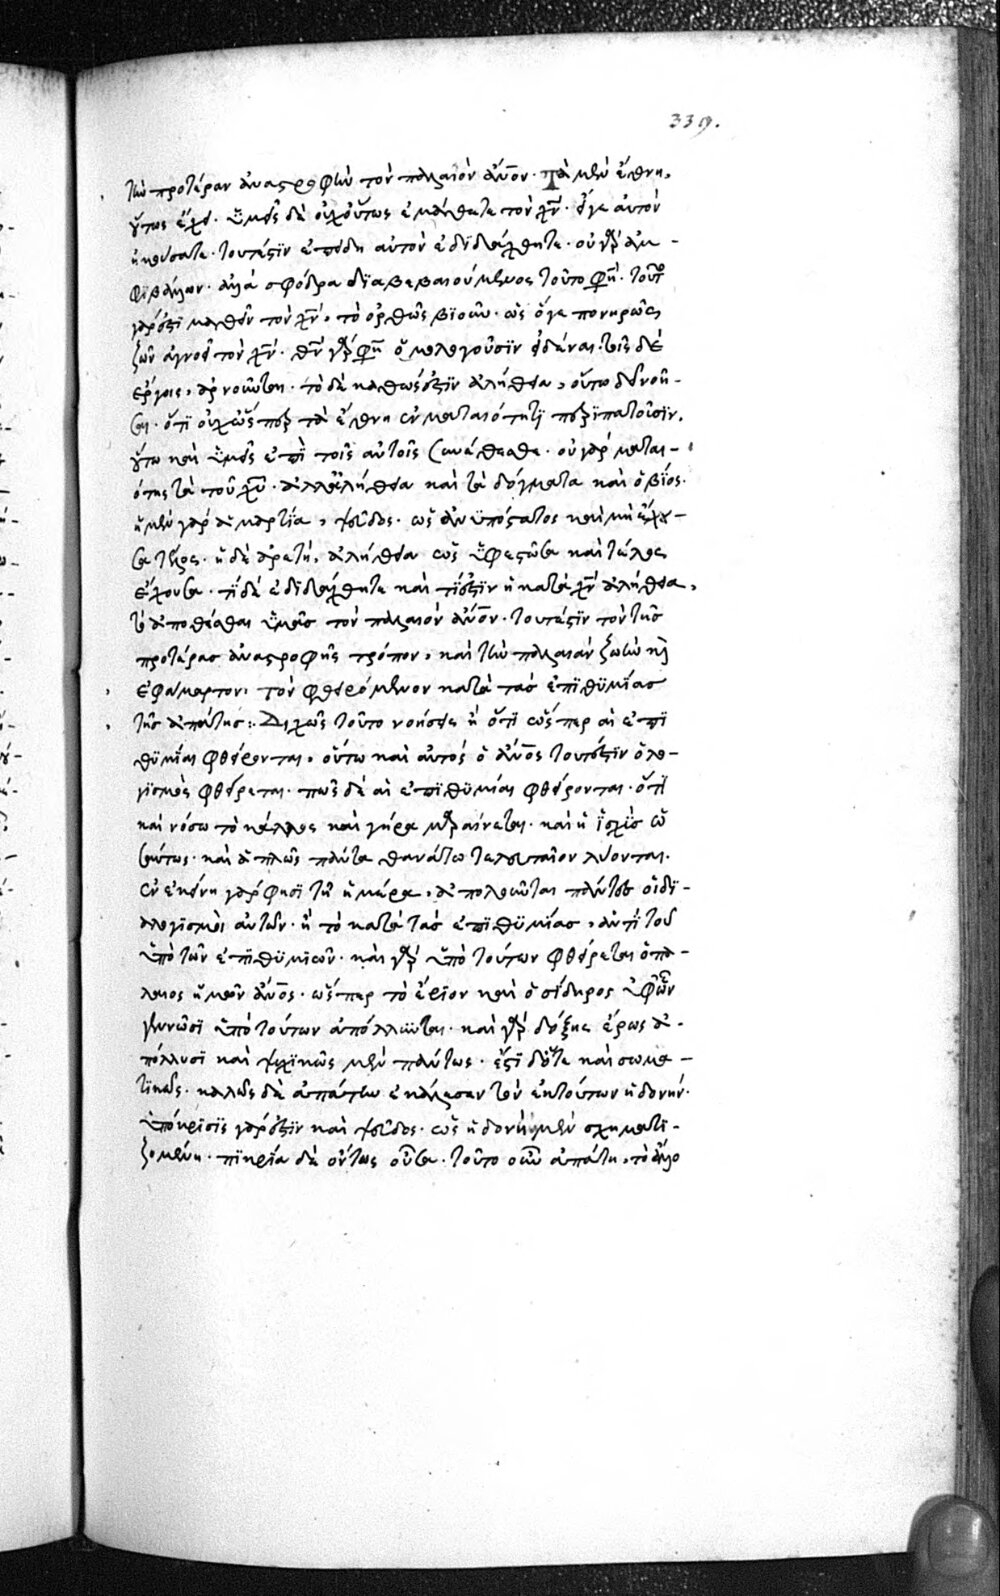 339.
τὴν προτέραν ἀναστροφὴν τὸν παλαιὸν ἄνον· Τὰ μὲν ἔθνη,
οὕτως ἔχει· ὑμεῖς δὲ οὐχ οὕτως ἐμάθετε τὸν χν· εἴγε αὐτὸν
ἠκούσατε· τουτέστιν ἐπειδὴ αὐτὸν ἐδιδάχθητε· οὐ γὰρ ἀμ-
φιβάλλων· ἀλλὰ σφόδρα διαβεβαιούμενος τοῦτο φησί· τοῦτο
γάρ ἐστι μαθεῖν τὸν χν, τὸ ὀρθῶς βιοῦν· ὡς ὅγε πονηρῶς
ζῶν ἀγνοεῖ τὸν χν· θν γὰρ φησὶ ὁμολογοῦσιν εἰδέναι· τοῖς δὲ
ἔργοις, ἀρνοῦνται· τὸ δὲ καθώς ἐστιν ἀλήθεια, οὕτω δινοῆ-
σαι· ὅτι οὐχ ὥσπερ τὰ ἔθνη ἐν ματαιότητι περιπατοῦσιν,
οὕτω καὶ ὑμεῖς ἐπὶ τοῖς αὐτοῖς
ότης τὰ τοῦ χυ· ἀλλ' ἀλήθεια καὶ τὰ δόγματα καὶ ὁ βίος·
ἡ μὲν γὰρ ἁμαρτία, ψεῦδος· ὡς ἀνυπόστατος καὶ μὴ ἔχου-
σα τέλος· ἡ δὲ ἀρετή, ἀλήθεια ὡς ὑφεστῶσα καὶ τέλος
ἔχουσα· τί δὲ ἐδιδάχθητε καὶ τίς ἐστιν ἡ κατὰ χν ἀλήθεια,
τὸ ἀποθέσθαι ὑμᾶς τὸν παλαιὸν ἄνον· τουτέστιν τὸν τῆς
προτέρας ἀναστροφῆς τρόπον, καὶ τὴν παλαιὰν ζωὴν καὶ
ἐφάμαρτον, τὸν φθειρόμενον κατὰ τὰς ἐπιθυμίας
τῆς ἀπάτης: Διχῶς τοῦτο νοήσεις ἢ ὅτι ὥσπερ αἱ ἐπι
θυμίαι φθείρονται, οὕτω καὶ αὐτὸς ὁ ἄνος τουτέστιν ὁ λο-
γισμὸς φθείρεται· πῶς δὲ αἱ ἐπιθυμίαι φθείρονται· ὅτι
καὶ νόσω τὸ κάλλος καὶ γήρα μαραίνεται· καὶ ἡ ἰσχὺς ὡ
σαύτως· καὶ ἁπλῶς πάντα θανάτω τελευταῖον λύονται·
ἐν ἐκείνη γάρ φησι τῆ ἡμέρα, ἀπολοῦνται πάντες οἱ δι-
αλογισμοὶ αὐτῶν· ἢ τὸ κατὰ τὰς ἐπιθυμίας, ἀντὶ τοῦ
ὑπὸ τῶν ἐπιθυμιῶν· καὶ γὰρ ὑπὸ τούτων φθείρεται ὁ πα-
λαιὸς ἡμῶν ἄνος· ὥσπερ τὸ ἔριον καὶ ὁ σίδηρος ὑφ' ὧν
γεννῶσι ὑπὸ τούτων ἀπόλλυται· καὶ γὰρ δόξης ἔρως ἀ-
πόλλυσι καὶ ψυχικῶς μὲν πάντως· ἔστι δὅτε καὶ σωμα-
τικῶς· καλῶς δὲ ἀπάτην ἐκάλεσαν τὴν ἐκ τούτων ἡδονήν·
ὑπόκρισις γάρ ἐστιν καὶ ψεῦδος· ὡς ἡδονὴ μὲν σχηματι-
ζομένη· πικρία δὲ ὄντως οὖσα· τοῦτο οὖν ἀπάτη, τὸ ἄλλο